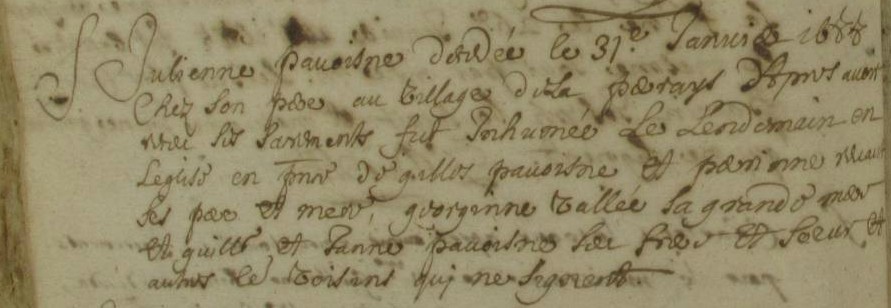 S. Julienne pauoisne decedée le 31e Januie 1688
Chez son pere au village de la parays Apres auoir
receu ses sacrements fut Inhumée Le Lendemain en
Leglise en pnce de gilles pauoisne et perinne
Ses pere et mere, georginne Vallée sa grande mere
et guille et Janne pauoisne ses frere et soeur et
autres le voisins qui ne signent